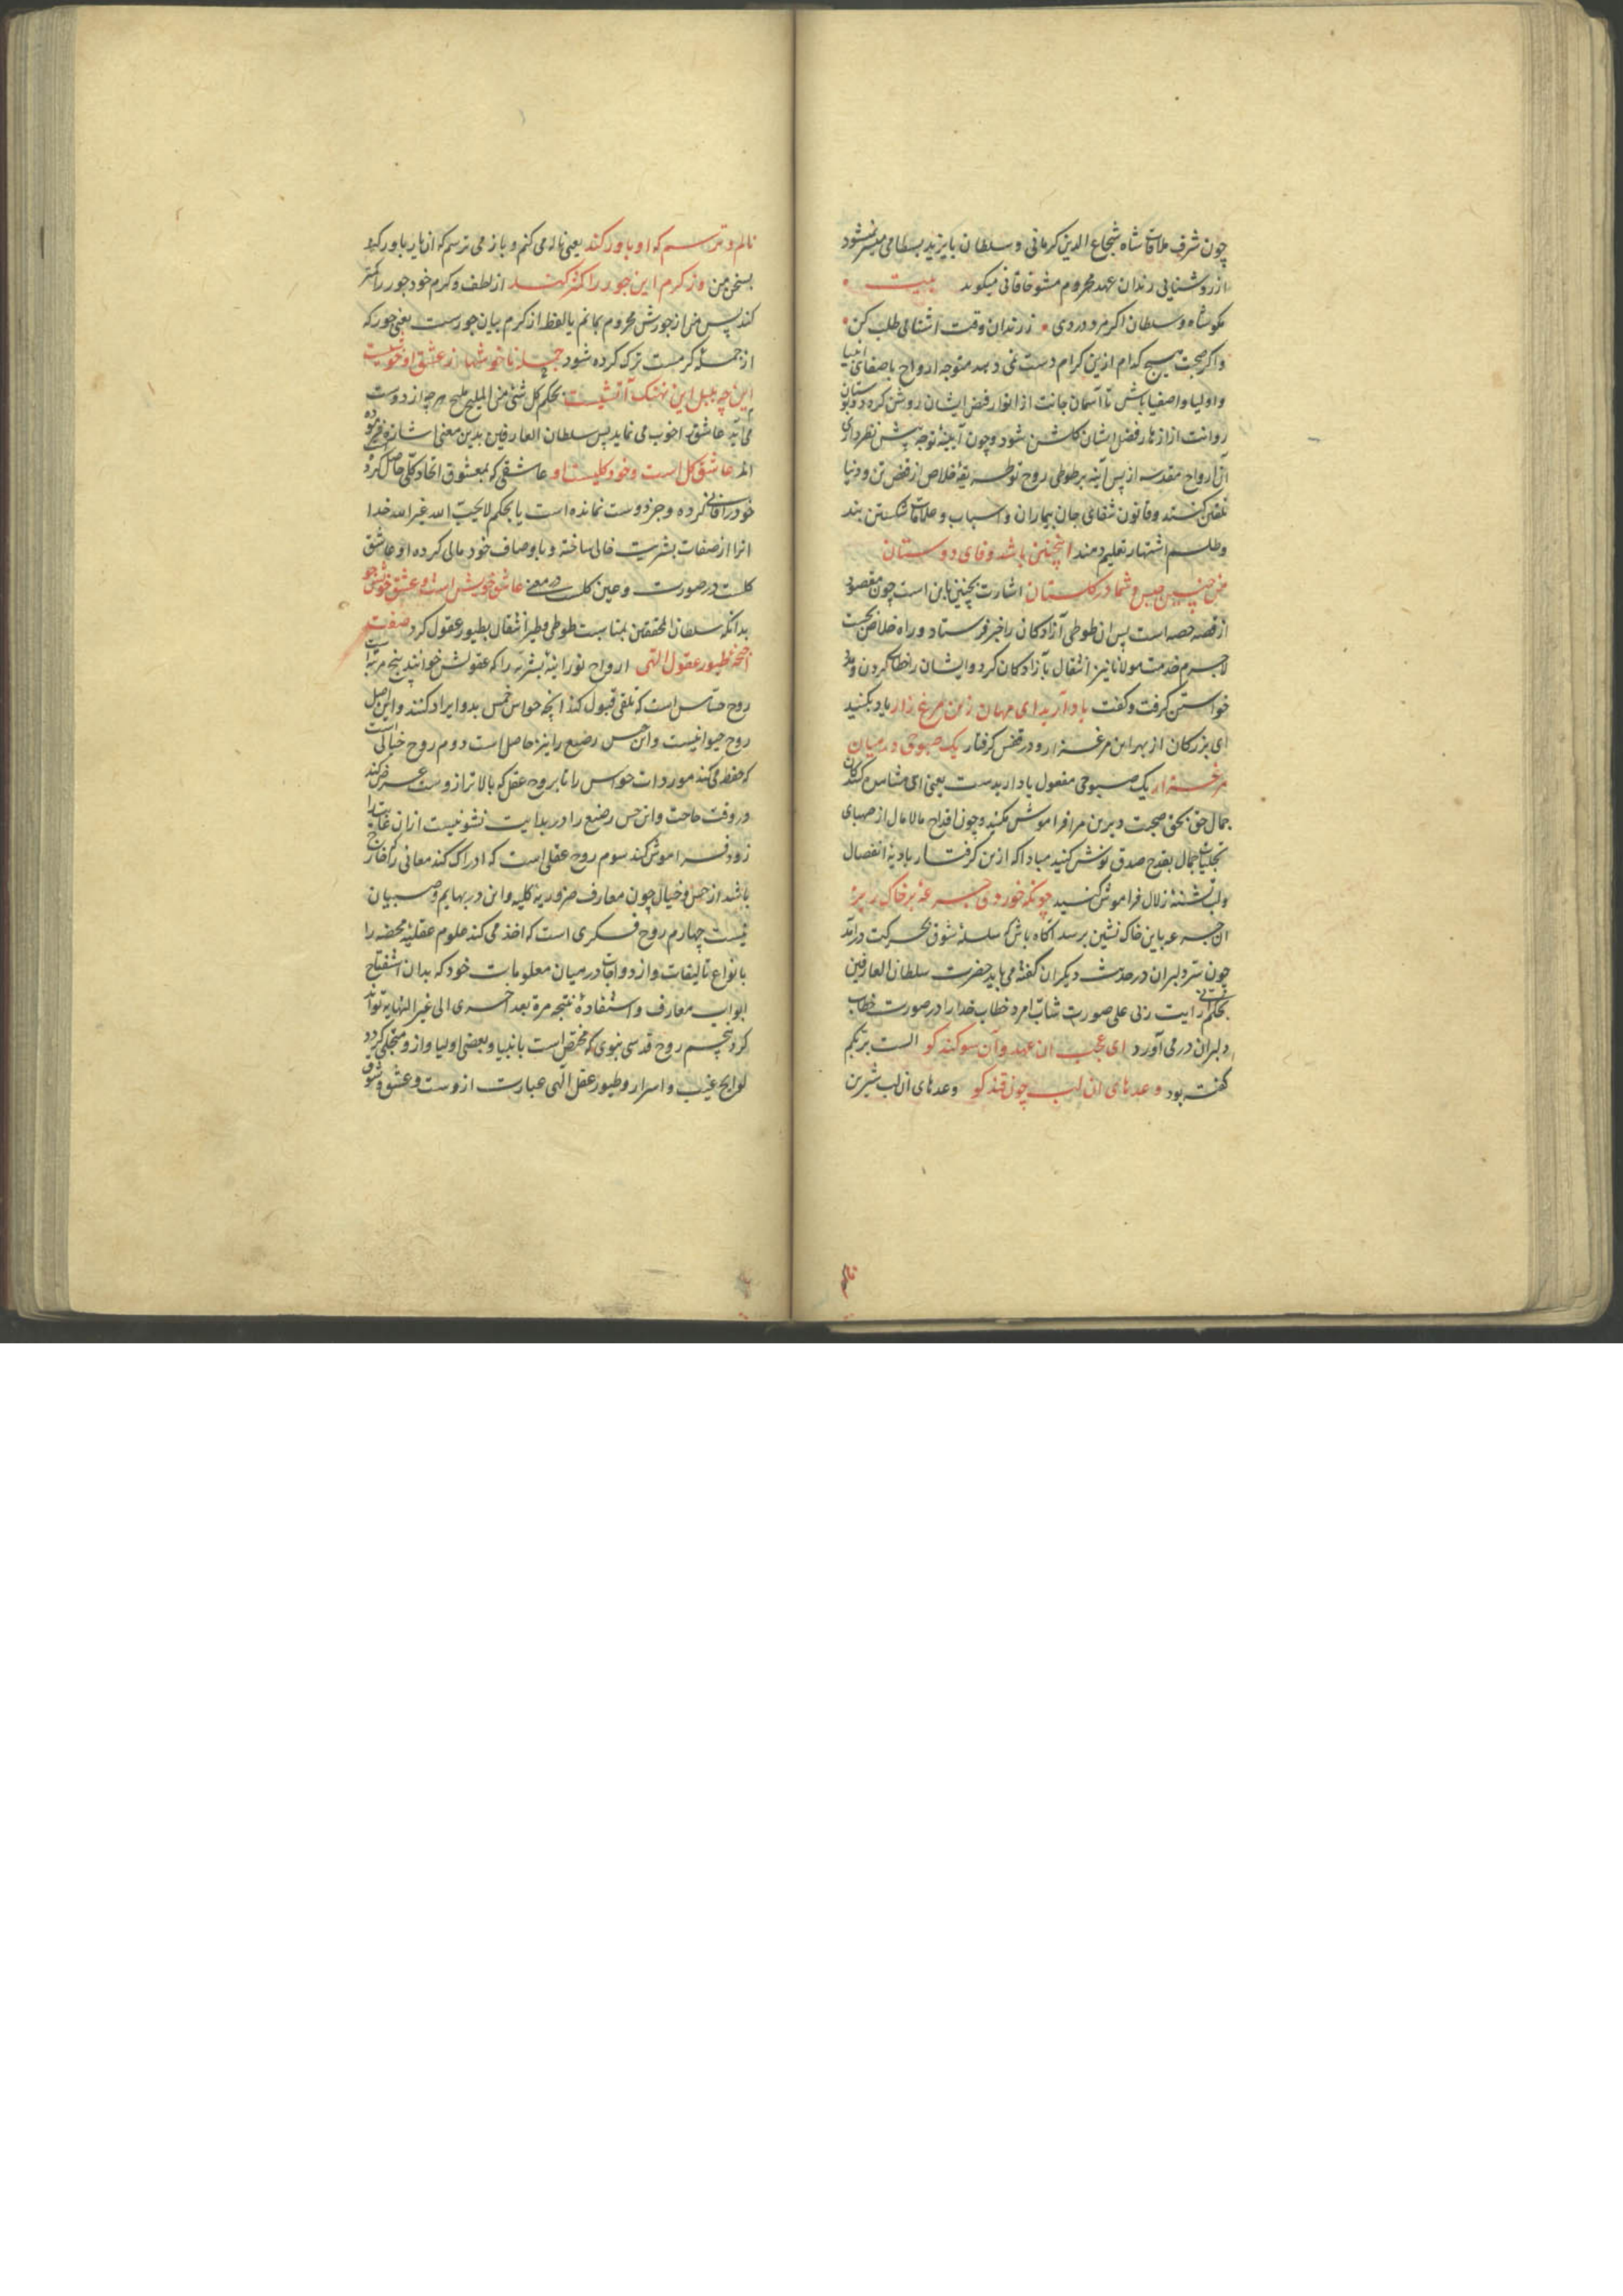 چون شرف ملاقات شاه شجاع الدین کرمانی و سلطان بایزید بسطامی میسر نمیشود
از روشنایی رندان عهد محروم مشو خاقانی میکوید بیت
مکو شاه و سلطان اکر مرد دردی ز رندان وقت اشنایی طلب کن
و اکر صحبت هیچ کدام ازین کرام دست نمی دهد متوجه ارواح باصفای انبیا
و اولیا و اصفیا باش تا آسمان جانت از انوار فیض ایشان روشن کردد و بوستان
روانت از ازهار فضل ایشان کلشن شود و چون آیینهٔ توجه پیش نظر داری
آن ارواح مقدسه از پس آینه بر طوطی روح تو طریقهٔ خلاص از قفص تن و دنیا
تلقین کنند و قانون شفای جان بیماران و اسباب و علاقات شکستن بند
و طلسم اشتهار تعلیم دهند اینچنین باشد وفای دوستان
من چنین حبس و شما در کلستان اشارت بچنین این است چون مقصود
از قصه حصه است پس ان طوطی آزادکان را خبر فرستاد و راه خلاص بجست
لاجرم خدمت مولانا نیز انتقال بآزادکان کرد و ایشان را خطاب کردن و مدد
خواستن کرفت و کفت یاد آرید ای مهان زین مرغ زار یاد بکنید
ای بزرکان از بهر این مرغ زار و در قفس کرفتار یک صبوحی در میان
مرغزار یک صبوحی مفعول یاد ارید است یعنی ای مشاهده کنندکان
جمال حق بحق صحبت دیرین مرا فراموش مکنید و چون اقداح مالامال از صهبای
تجلیات جمال بقدح صدق نوش کنید مبادا که ازین کرفتار بادیهٔ انفصال
و لب تشنهٔ زلال فراموش کنید چونکه خوردی جرعهٔ بر خاک ریز
ان جرعه باین خاک نشین برسد اکاه باش که سلسلهٔ شوق بحرکت درآمد
چون سر دلبران در حدیث دیکران کفته می باید حضرت سلطان العارفین
بحکم رایت ربی علی صورت شاب امرد خطاب خدا را در صورت خطاب
دلبران درمی آورد ای عجب ان عهد و آن سوکند کو الست بربکم
کفته بود وعدهای ان لب چون قند کو وعدهای ان لب شیرین
نالم و ترسم که او باور کند یعنی ناله می کنم و باز می ترسم که ان یار باور کند
بسخن من وز کرم این جور را کمتر کند از لطف و کرم خود جور را کمتر
کند پس من از جورش محروم بمانم یا لفظ از کرم بیان جورست یعنی جور که
از جملهٔ کرمست ترک کرده شود جمله ناخوشها از عشق او خوشیست
این چه بلبل این نهنک آتشیست بحکم کل شئ من الملیح ملیح هر چه از دوست
می آید عاشق را خوب می نماید پس سلطان العارفین بدین معنی اشارت فرموده
اند عاشق کل است و خود کلیست او عاشقی که بمعشوق اتحاد کلی حاصل کرد
خود را فانی کرده و جز دوست نمانده است یا بحکم لا یحب الله غیر الله خدا
انرا از صفات بشریت خالی ساخته و باوصاف خود حالی کرده او عاشق
کلست در صورت و عین کلست در معنی عاشق خویش است و عشق خویش جو
بدانکه سلطان المحققین بمناسبت طوطی و طیر انتقال بطیور عقول کرد صفت
اجنحهٔ طیور عقول الهی ارواح نورانیهٔ بشریه را که عقولش خوانند پنج مرتبه است
روح حساس است که تلقی و قبول کند انچه حواس خمس بدو ایراد کنند و این اصل
روح حیوانیست و این حس رضیع را نیز حاصل است دوم روح خیالی است
که حفظ می کند موردات حواس را تا بروح عقل که بالاتر ازوست عرض کند
در وقت حاجت و این حس رضیع را در بدایت نشو نیست ازان غایت را
زود فراموش کند سوم روح عقلی است که ادراک کند معانی را که خارج
باشد از حس و خیال چون معارف ضروریهٔ کلیه و این در بهایم و صبیان
نیست چهارم روح فکری است که اخذ می کند علوم عقلیهٔ محضه را
بانواع تالیفات و ازدواجات در میان معلومات خود که بدان استفتاح
ابواب معارف و استفادهٔ نتیجه مرة بعد اخری الی غیر النهایه تواند
کرد پنجم روح قدسی نبوی که مختص است بانبیا و بعضی اولیا و ازو متجلی کردد
لوایح غیب و اسرار و طیور عقل الهی عبارت ازوست و عشق و شوق